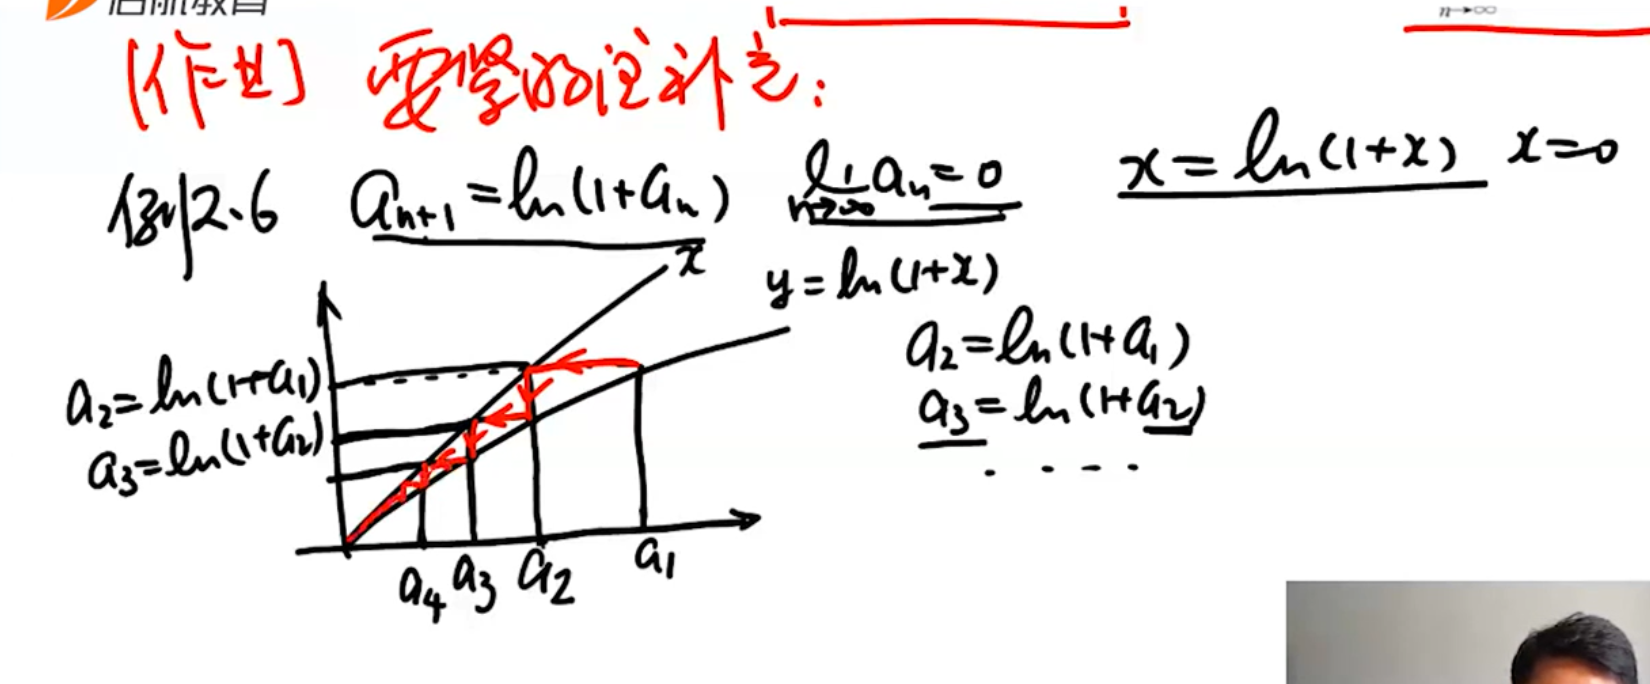 启航教育
n→∞
[作业] 要紧的注补充:
例2.6 a_{n+1}=ln(1+a_n) lim_{n→∞} a_n=0 x=ln(1+x) x=0
x
y=ln(1+x)
a_2=ln(1+a_1)
a_3=ln(1+a_2)
. . . .
a_2=ln(1+a_1)
a_3=ln(1+a_2)
a_4 a_3 a_2 a_1